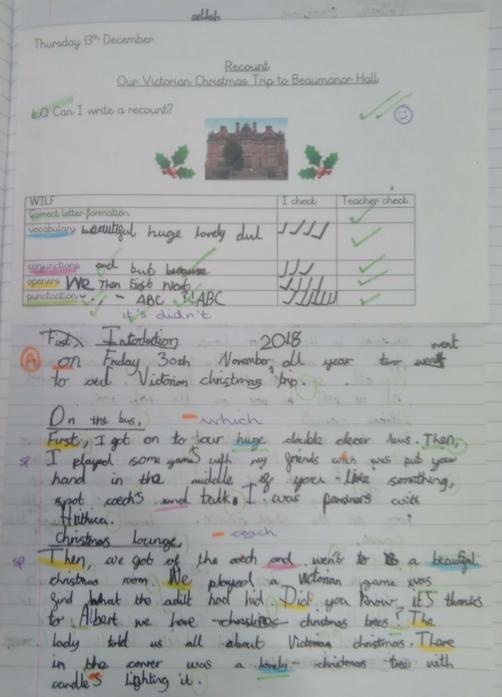 Thursday 13th December
Recount
Our Victorian Christmas Trip to Beaumanor Hall
LQ Can I write a recount?
WILF I check Teacher check
Correct letter formation
vocabulary beautiful huge lovely dul
conjunctions and but because
openers We Then First Next
punctuation . , - ABC ?! ABC
it's didn't
First Intordution 2018
A on Friday 30th November all year two went
to oud Victorian christmas trip.
On the bus, - which
First, I got on to our huge double decer bus. Then,
sp I played some games with my friends wich was put your
hand in the middle if you like something,
spot coach's and talk. I was partners with
Christmas Lounge, - coach
sp Then, we got of the coch and went to a beautiful
christmas room. We played a Victorian game was
find what the adult had hid. Did you know it's thanks
to Albert we have christmas trees? The
lady told us all about Victorian christmas. There
in the corner was a lovely christmas tree with
candle's lighting it.